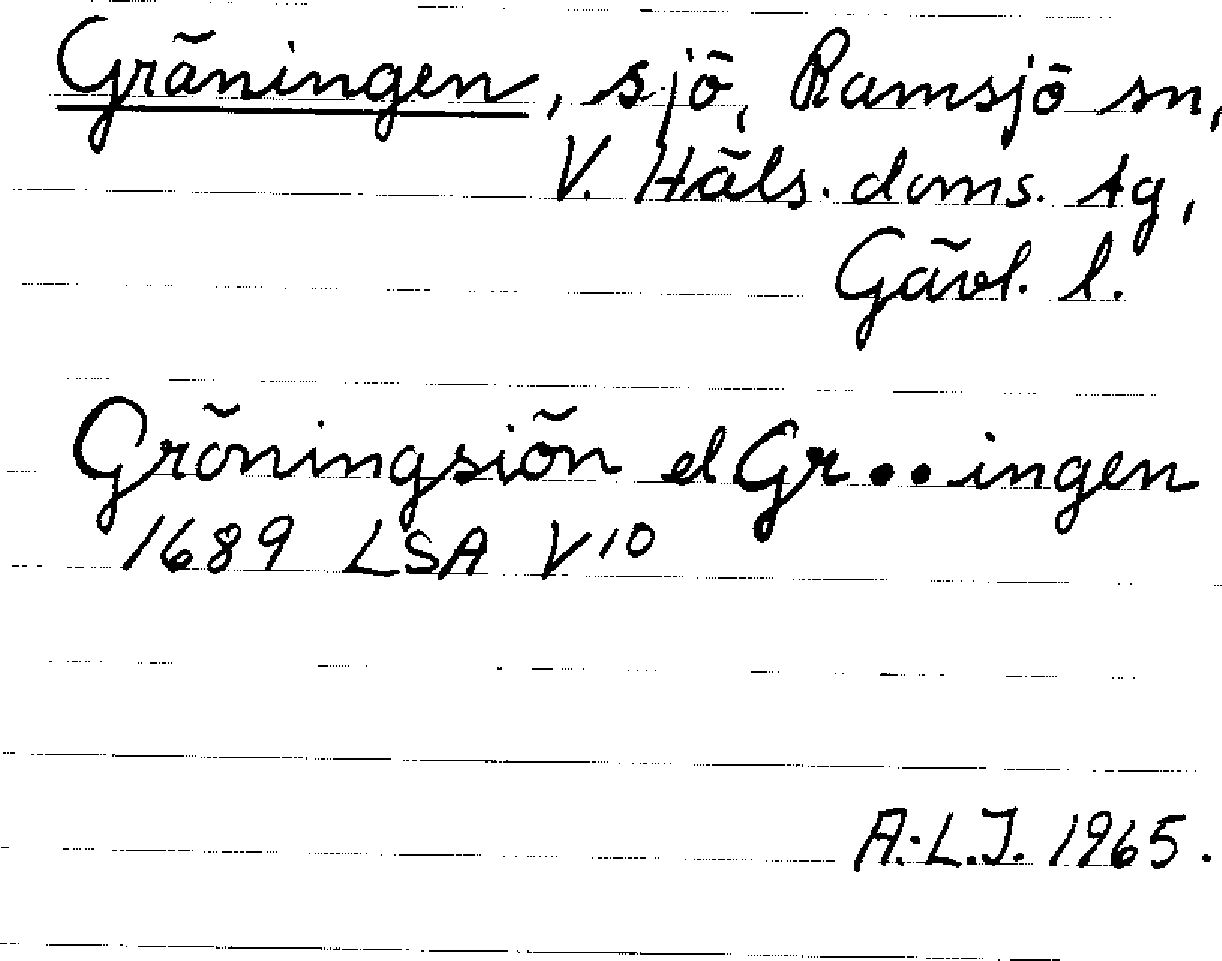 Gräningen, sjö, Ramsjö sn,
V. Häls. doms. tg,
Gävl. l.
Gröningsiön el Gr••ingen
1689 LSA V10
A.-L.J. 1965.